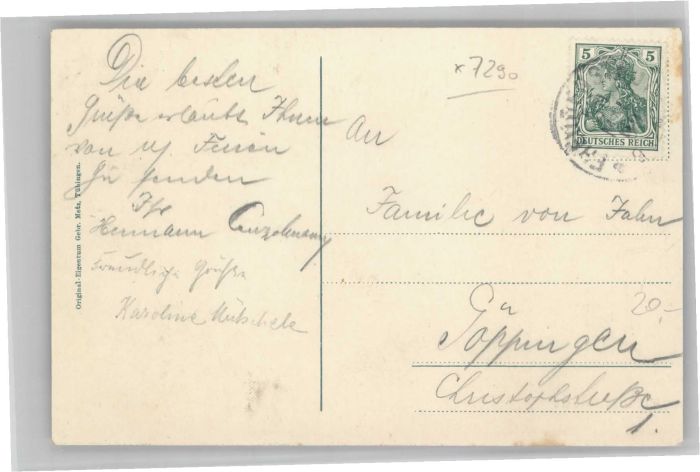 Die besten
Grüße erlaubt Ihnen
von uf. Ferien
zu senden
Ihr
Hermann
Freundliche Grüße
Karoline
Original-Eigentum Gebr. Metz, Tübingen.
x7290
5 5
DEUTSCHES REICH
An
Familie von Jahn
20.-
Göppingen
Christophstraße
1.